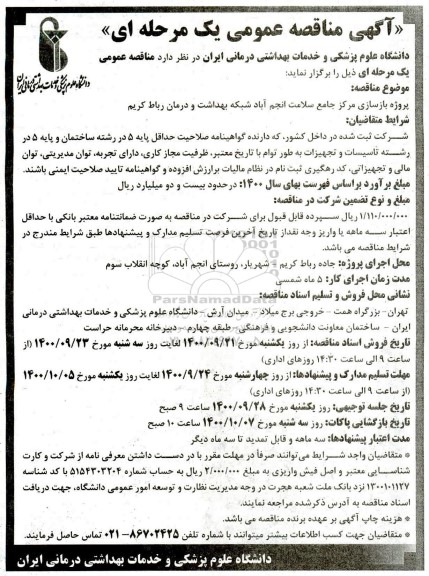 «آگهی مناقصه عمومی یک مرحله ای»
دانشگاه علوم پزشکی و خدمات بهداشتی درمانی ایران در نظر دارد مناقصه عمومی
یک مرحله ای ذیل را برگزار نماید:
موضوع مناقصه:
پروژه بازسازی مرکز جامع سلامت انجم آباد شبکه بهداشت و درمان رباط کریم
شرایط متقاضیان:
شرکت ثبت شده در داخل کشور، که دارنده گواهینامه صلاحیت حداقل پایه ۵ در رشته ساختمان و پایه ۵ در
رشته تاسیسات و تجهیزات به طور توام با تاریخ معتبر، ظرفیت مجاز کاری، دارای تجربه، توان مدیریتی، توان
مالی و تجهیزاتی، کد رهگیری ثبت نام در نظام مالیات برارزش افزوده و گواهینامه تایید صلاحیت ایمنی باشند.
مبلغ برآورد براساس فهرست بهای سال ۱۴۰۰: درحدود بیست و دو میلیارد ریال
مبلغ و نوع تضمین شرکت در مناقصه:
۱/۱۱۰/۰۰۰/۰۰۰ ریال سپرده قابل قبول برای شرکت در مناقصه به صورت ضمانتنامه معتبر بانکی با حداقل
اعتبار سه ماهه یا واریز وجه نقداز تاریخ آخرین فرصت تسلیم مدارک و پیشنهادها طبق شرایط مندرج در
شرایط مناقصه می باشد.
محل اجرای پروژه: جاده رباط کریم - شهریار، روستای انجم آباد، کوچه انقلاب سوم
مدت زمان اجرای کار: ۵ ماه شمسی
نشانی محل فروش و تسلیم اسناد مناقصه:
تهران- بزرگراه همت - خروجی برج میلاد - میدان آرش - دانشگاه علوم پزشکی و خدمات بهداشتی درمانی
ایران - ساختمان معاونت دانشجویی و فرهنگی - طبقه چهارم - دبیرخانه محرمانه حراست
تاریخ فروش اسناد مناقصه: از روز یکشنبه مورخ ۱۴۰۰/۰۹/۲۱ لغایت روز سه شنبه مورخ ۱۴۰۰/۰۹/۲۳ (از
ساعت ۹ الی ساعت ۱۴:۳۰ روزهای اداری)
مهلت تسلیم مدارک و پیشنهادها: از روز چهارشنبه مورخ ۱۴۰۰/۹/۲۴ لغایت روز یکشنبه مورخ ۱۴۰۰/۱۰/۰۵
(از ساعت ۹ الی ساعت ۱۴:۳۰ روزهای اداری)
تاریخ جلسه توجیهی: روز یکشنبه مورخ ۱۴۰۰/۰۹/۲۸ ساعت ۹ صبح
تاریخ بازگشایی پاکات: روز سه شنبه مورخ ۱۴۰۰/۱۰/۰۷ ساعت ۱۰ صبح
مدت اعتبار پیشنهادها: سه ماهه و قابل تمدید تا سه ماه دیگر
* متقاضیان واجد شرایط می‌توانند صرفاً در مهلت مقرر با در دست داشتن معرفی نامه از شرکت و کارت
شناسایی معتبر و اصل فیش واریزی به مبلغ ۲/۰۰۰/۰۰۰ ریال به حساب شماره ۵۱۵۴۳۰۳۲۰۴ با کد شناسه
۱۳۰۰۱۰۱۱۲۷ نزد بانک ملت شعبه هجرت در وجه مدیریت نظارت و توسعه امور عمومی دانشگاه، جهت دریافت
اسناد مناقصه به آدرس ذکرشده مراجعه نمایند.
* هزینه چاپ آگهی بر عهده برنده مناقصه می باشد.
* متقاضیان جهت کسب اطلاعات بیشتر میتوانند با شماره تلفن ۸۶۷۰۲۴۲۵-۰۲۱ تماس حاصل فرمایند.
دانشگاه علوم پزشکی و خدمات بهداشتی درمانی ایران
ParsNamadData